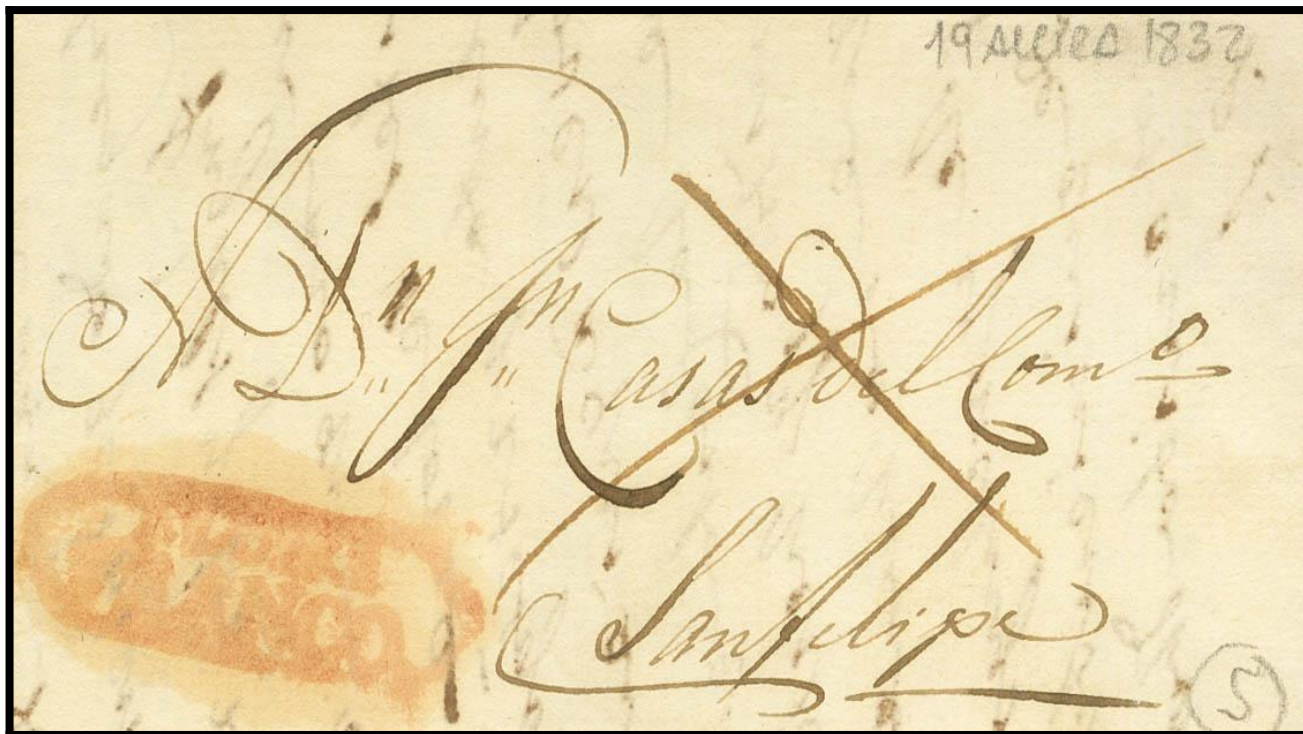 1832
A Dn Jn Casas del Como
San felipe
5